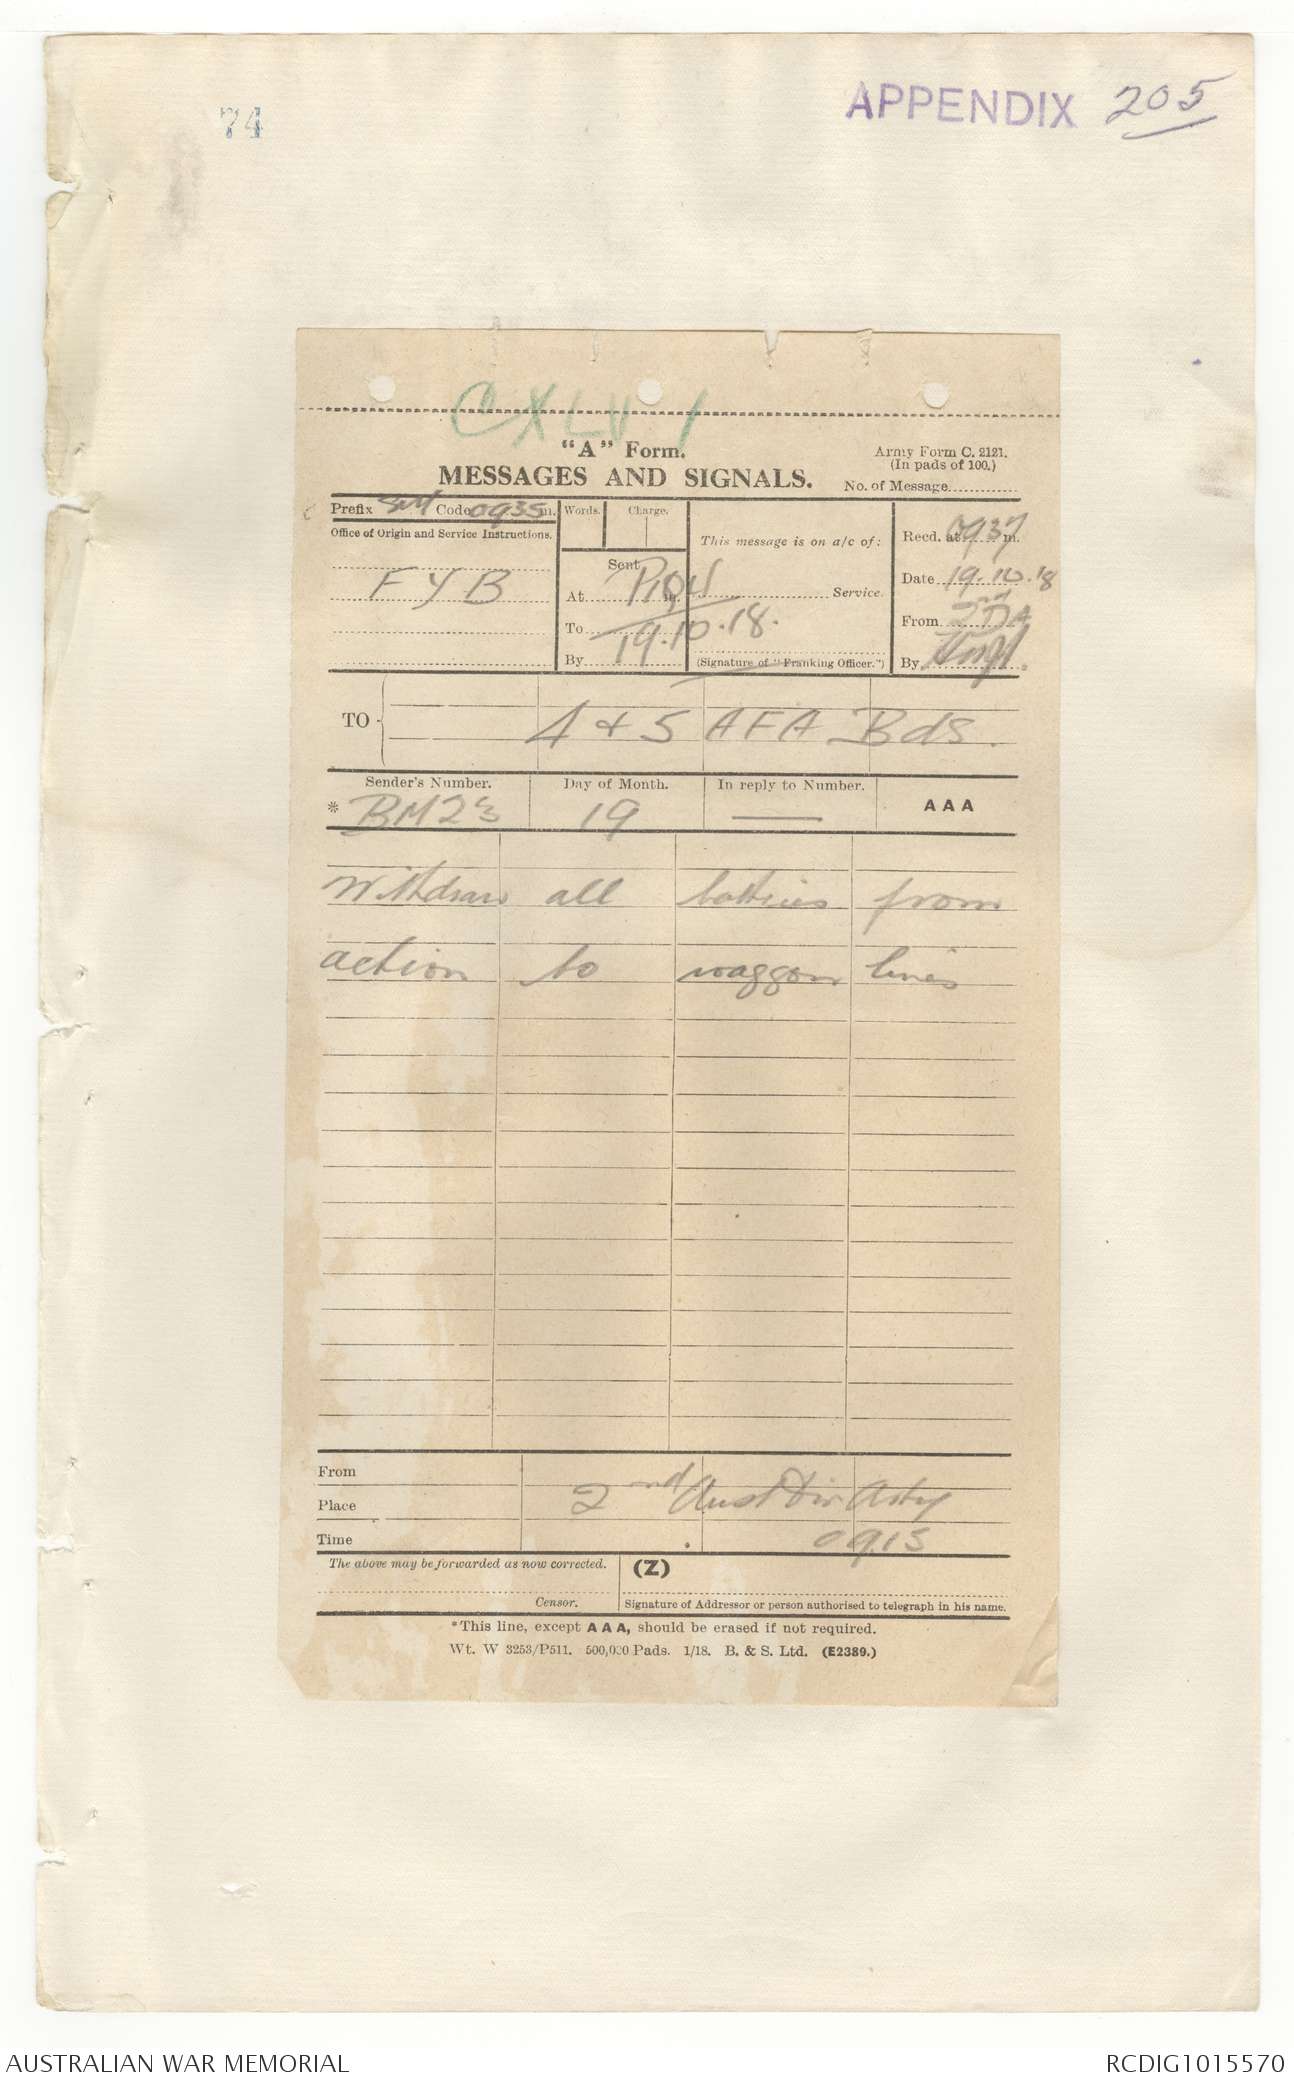 74
APPENDIX 205
CXLVI
"A" Form.
MESSAGES AND SIGNALS.
Army Form C. 2121.
(In pads of 100.)
No. of Message
Prefix SM Code 0935 m.
Office of Origin and Service Instructions.
FYB
Words. Charge.
Sent
At m.
To
By
19.10.18.
This message is on a/c of:
Service.
(Signature of "Franking Officer.")
Recd. at 0937 m.
Date 19.10.18
From 2nd DA
By
TO 4 & 5 AFA Bds.
Sender's Number. Day of Month. In reply to Number. AAA
* BM23 19 —
Withdraw all batteries from
action to waggon lines
From
Place 2nd Aust Div Arty
Time 0915
The above may be forwarded as now corrected. (Z)
Censor. Signature of Addressor or person authorised to telegraph in his name.
*This line, except AAA, should be erased if not required.
Wt. W 3253/P511. 500,000 Pads. 1/18. B. & S. Ltd. (E2389.)
AUSTRALIAN WAR MEMORIAL RCDIG1015570